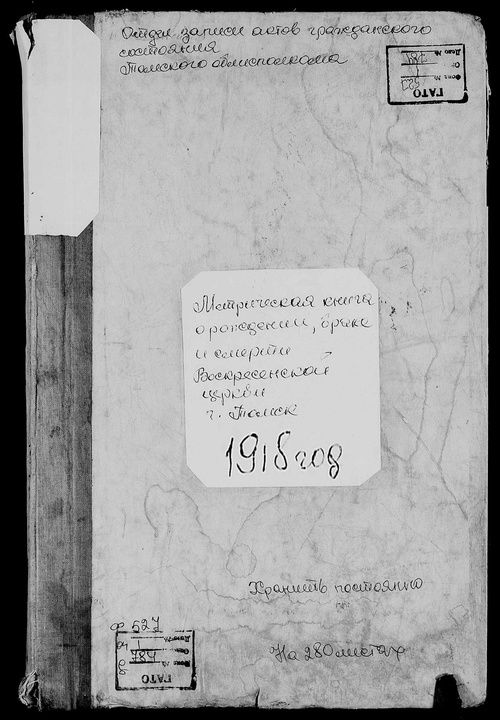 Отдел записи актов гражданского
состояния
Томского облисполкома
ГАТО
Фонд №
527
Оп
Дело №
Метрическая книга
о рождении, браке
и смерти
Воскресенской
церкви
г. Томск
1918 год
Хранить постоянно
На 280 листах
ф 527
ГАТО
Фонд №
Оп
784
Дело №